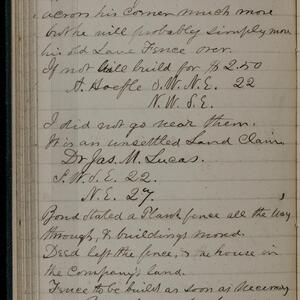 across his corner much more
but he will probably simply move
his old Lane Fence over.
If not will build for $2.50
A. Hoefle S.W. N.E. 22
N.W. S.E.
I did not go near them.
It is an unsettled Land Claim
Dr Jas. M. Lucas.
S.W. S.E. 22.
N.E. 27.
Bond stated a Plank fence all the way
through, & buildings moved.
Deed left the fence, & house in
the Company's Land.
Fence to be built as soon as necessary